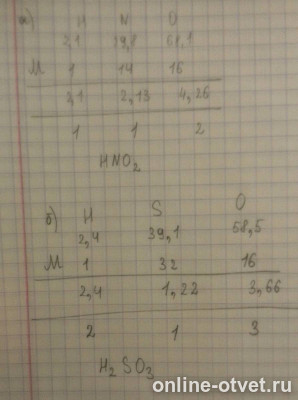 а) H N O
2,1 29,8 68,1
M 1 14 16
2,1 2,13 4,26
1 1 2
HNO2
б) H S O
2,4 39,1 58,5
M 1 32 16
2,4 1,22 3,66
2 1 3
H2SO3
online-otvet.ru